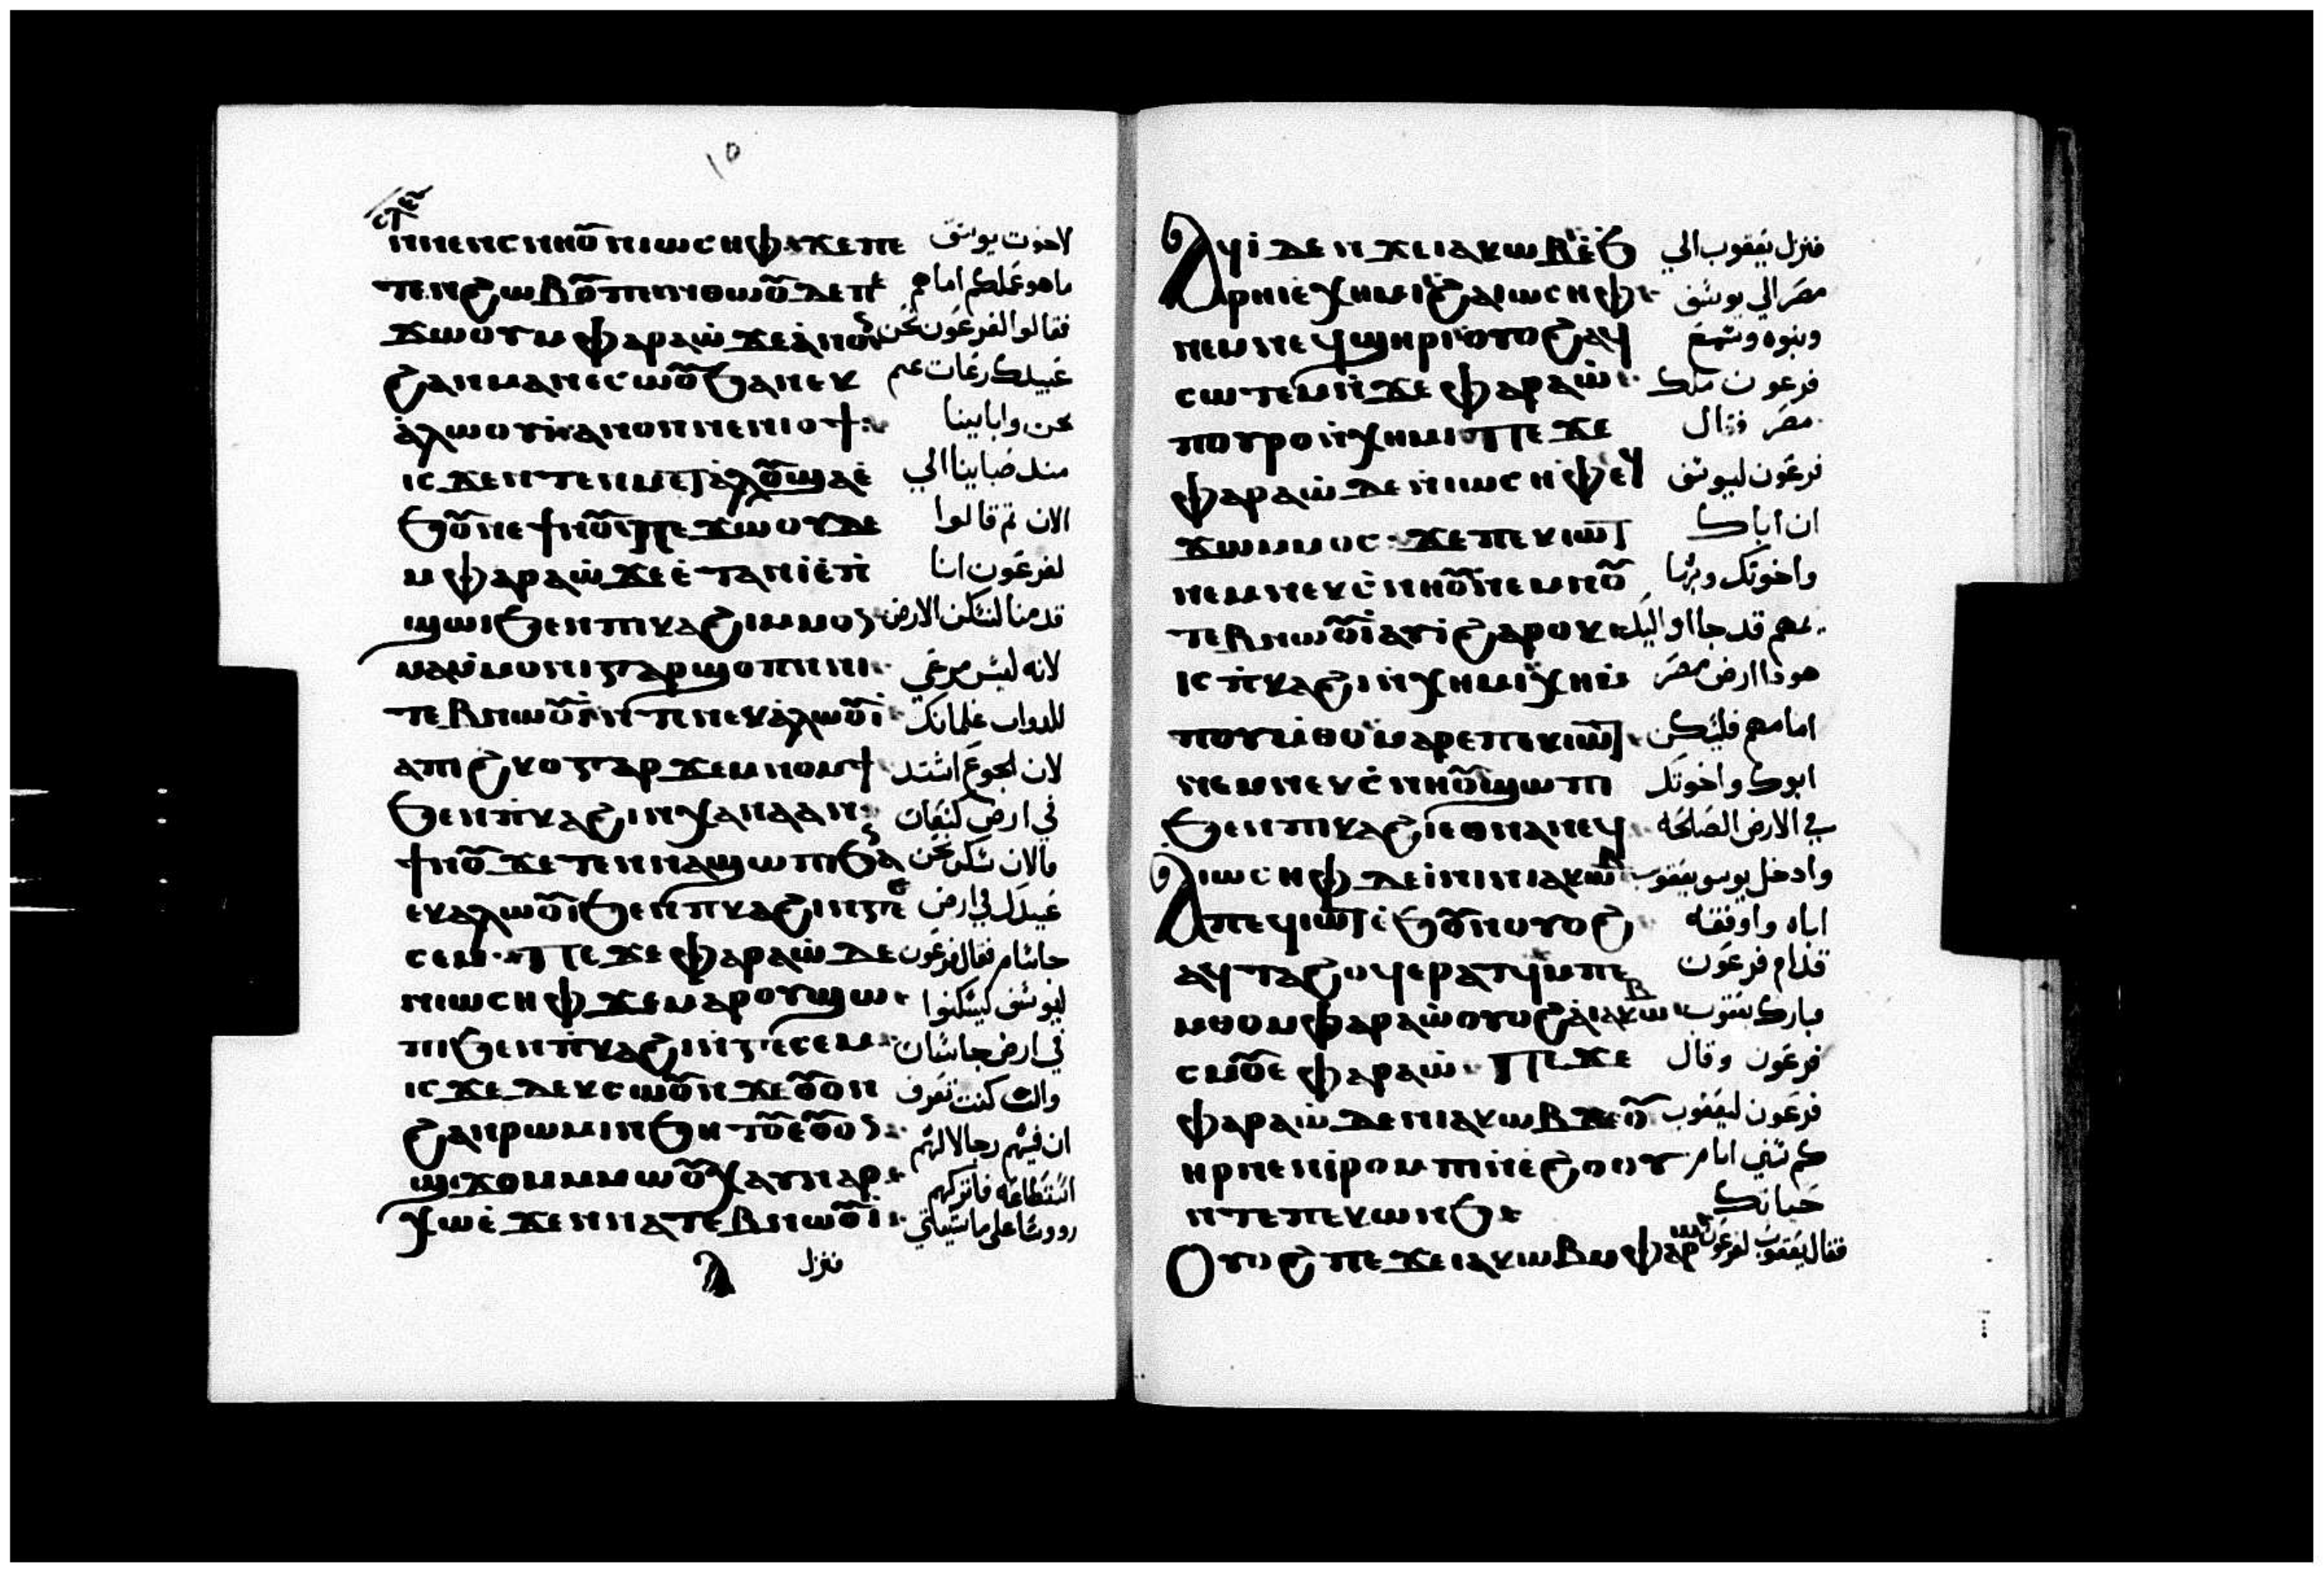 ١٥
ⲛⲛⲉⲛⲥⲛⲏⲟ̅ⲩ ⲛⲓⲱⲥⲏⲫ ϫⲉ ⲡⲉ لاخوت يوسف
ⲧⲉⲛϩⲱⲃ ما هو عملكم اما هم
ϫⲱⲟⲩ ⲙⲫⲁⲣⲁⲱ̇ ϫⲉ ⲁ̀ⲛⲟⲛ فقالوا لفرعون نحن
ϩⲁⲛⲙⲁⲛⲉⲥⲱⲟ̅ⲩ ϧⲁ ⲛⲉⲕ عبيدك رعات غنم
ⲁ̀ⲗⲱⲟⲩⲓ̀ ⲁⲛⲟⲛ ⲛⲉⲙ ⲛⲉⲛⲓⲟϯ نحن وابايينا
ⲓⲥϫⲉⲛ ⲧⲉⲛⲙⲉⲧⲁ̀ⲗⲟ̅ⲩ ϣⲁⲉ̀ منذ صبايينا الي
ϧⲟ̅ⲩⲛ ⲉϯⲛⲟ̅ⲩ ⲡⲉϫⲱⲟⲩ ⲇⲉ الان ثم قالوا
ⲙⲫⲁⲣⲁⲱ̇ ϫⲉ ⲉ̀ⲧⲁⲛⲓ̀ ⲉ̀ⲡ̀ لفرعون اننا
ϣⲱⲓ ϧⲉⲛ ⲡⲓⲕⲁϩⲓ ⲙⲙⲟⲛ قدمنا لنسكن الارض
ⲙⲁⲙ̀ⲙⲟⲛⲓ ⲅⲁⲣ ϣⲟⲡ ⲛⲛⲓ لانه ليس مرعي
ⲧⲉⲃⲛⲱⲟ̅ⲩⲓ̀ ⲛⲧⲉ ⲛⲉⲕⲁ̀ⲗⲱⲟ̅ⲩⲓ̀ للدواب غلمانك
ⲁⲡⲓϩⲕⲟ ⲅⲁⲣ ϫⲉⲙⲛⲟⲙϯ لان الجوع اشتد
ϧⲉⲛ ⲡ̀ⲕⲁϩⲓ ⲛⲭⲁⲛⲁⲁⲛ في ارض كنعان
ϯⲛⲟ̅ⲩ ϫⲉ ⲧⲉⲛⲛⲁϣⲱⲡⲓ ϧⲁ ⲛ فالان نسكن نحن
ⲉⲕⲁⲗⲱⲟ̅ⲩⲓ ϧⲉⲛ ⲡⲕⲁϩⲓ ⲛⲅⲉ عبيدك في ارض
ⲥⲉⲙ ⲡⲉϫⲉ ⲫⲁⲣⲁⲱ̇ ⲇⲉ حاسام فقال فرعون
ⲛⲓⲱⲥⲏⲫ ϫⲉ ⲙⲁⲣⲟⲩϣⲱ ليوسف ليسكنوا
ⲡⲓ ϧⲉⲛ ⲡ̀ⲕⲁϩⲓ ⲛ̀ⲅⲉⲥⲉⲙ في ارض جاسان
ⲓⲥϫⲉ ⲇⲉ ⲕⲥⲱⲟ̅ⲩⲛ ϫⲉ ⲟ̅ⲩⲟⲛ وان كنت تعرف
ϩⲁⲛⲣⲱⲙⲓ ⲛϧⲏⲧⲟ̅ⲩ ⲉⲟ̅ⲩⲟⲛ ان فيهم رجالا لهم
ϣϫⲟⲙ ⲙⲙⲱⲟ̅ⲩ ⲭⲁⲩ ⲛⲁⲣ استطاعه فاتركهم
ⲭⲱⲛ ⲉ̀ϫⲉⲛ ⲛⲁⲧⲉⲃⲛⲱⲟ̅ⲩⲓ̀ رووسا علي ماشيتي
ⲁ فنزل
ⲁϥⲓ̀ ⲇⲉ ⲛϫⲉ ⲓⲁⲕⲱⲃ ⲉ̀ϧ فنزل يعقوب الي
ⲣⲏⲓ ⲉⲭⲏⲙⲓ ϩⲁ ⲓⲱⲥⲏⲫ مصر الي يوسف
ⲛⲉⲙ ⲛⲉϥϣⲏⲣⲓ ⲟⲩⲟϩ ⲁϥ وبنوه وسمع
ⲥⲱⲧⲉⲙ ⲛ̀ϫⲉ ⲫⲁⲣⲁⲱ̇ فرعون ملك
ⲡⲟⲩⲣⲟ ⲛ̀ⲭⲏⲙⲓ ⲡⲉϫⲉ مصر فقال
ⲫⲁⲣⲁⲱ̇ ⲇⲉ ⲛⲓⲱⲥⲏⲫ ⲉϥ فرعون ليوسف
ϫⲱⲙⲙⲟⲥ ϫⲉ ⲡⲉⲕⲓⲱⲧ ان اباك
ⲛⲉⲙ ⲛⲉⲕⲥ̀ⲛⲏⲟ̅ⲩ ⲛⲉⲙ ⲛⲟ̅ⲩ واخوتك وبها
ⲧⲉⲃⲛⲱⲟ̅ⲩⲓ̀ ⲁⲩⲓ̀ ϩⲁⲣⲟⲕ يمهم قد جااوا اليك
ⲓⲥ ⲡ̀ⲕⲁϩⲓ ⲛ̀ⲭⲏⲙⲓ ⲭⲏ هوذا ارض مصر
ⲡⲟⲩⲙ̀ⲑⲟ ⲙⲁⲣⲉ ⲡⲉⲕⲓⲱⲧ امامهم فليسكن
ⲛⲉⲙ ⲛⲉⲕⲥ̀ⲛⲏⲟ̅ⲩ ϣⲱⲡⲓ ابوك واخوتك
ϧⲉⲛ ⲡⲓⲕⲁϩⲓ ⲉⲑⲛⲁⲛⲉϥ في الارض الصالحه
ⲁⲓⲱⲥⲏⲫ ⲇⲉ ⲓ̀ⲛⲓ ⲛⲓⲁⲕⲱⲃ وادخل يوسف يعقوب
ⲡⲉϥⲓⲱⲧ ⲉ̀ϧⲟ̅ⲩⲛ ⲟⲩⲟϩ اباه واوقفه
ⲁϥⲧⲁϩⲟϥ ⲉⲣⲁⲧϥ ⲙⲡⲉ قدام فرعون
ⲙⲑⲟ ⲙⲫⲁⲣⲁⲱ̇ ⲟⲩⲟϩ ⲁ̀ ⲓⲁⲕⲱⲃ وبارك يعقوب
ⲥⲙⲟ̅ⲩ ⲉ ⲫⲁⲣⲁⲱ̇ ⲡⲉϫⲉ فرعون وقال
ⲫⲁⲣⲁⲱ̇ ⲇⲉ ⲛⲓⲁⲕⲱⲃ ϫⲉ ⲟ̅ⲩ فرعون ليعقوب
ⲏⲣ ⲛⲉ ⲛⲓⲣ̀ⲟⲙⲡⲓ ⲛ̀ⲉ̀ϩⲟⲟⲩ كم سني ايام
ⲛⲧⲉ ⲡⲉⲕⲱⲛϧ حياتك
ⲟⲩⲟϩ ⲡⲉϫⲉ ⲓⲁⲕⲱⲃ ⲙⲫⲁⲣⲁⲱ فقال يعقوب لفرعون